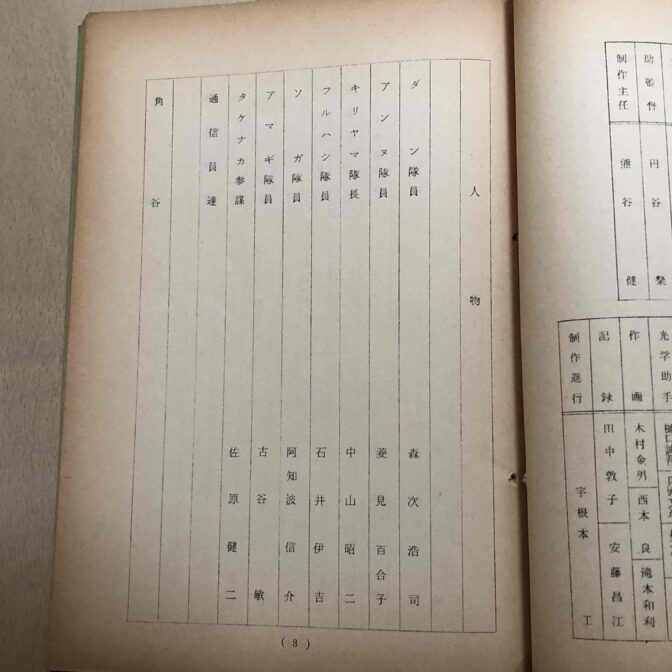 助監督 円谷粲
制作主任 熊谷健
光学助手
作画 木村金男 西本良 滝本和利
記録 田中敦子 安藤昌江
制作進行 宇根本工
人物
ダン隊員 森次浩司
アンヌ隊員 菱見百合子
キリヤマ隊長 中山昭二
フルハシ隊員 石井伊吉
ソガ隊員 阿知波信介
アマギ隊員 古谷敏
タケナカ参謀 佐原健二
通信員達
角谷
(3)